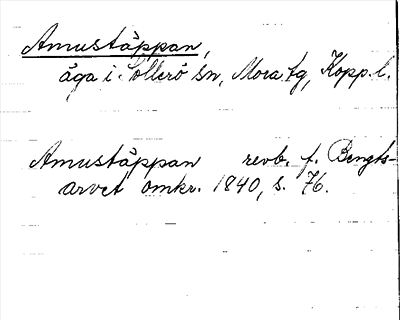 Amustäppan,
äga i Sollerö sn, Mora tg, Kopp. l.
Amustäppan revb. f. Bengts-
arvet omkr. 1840, s. 76.